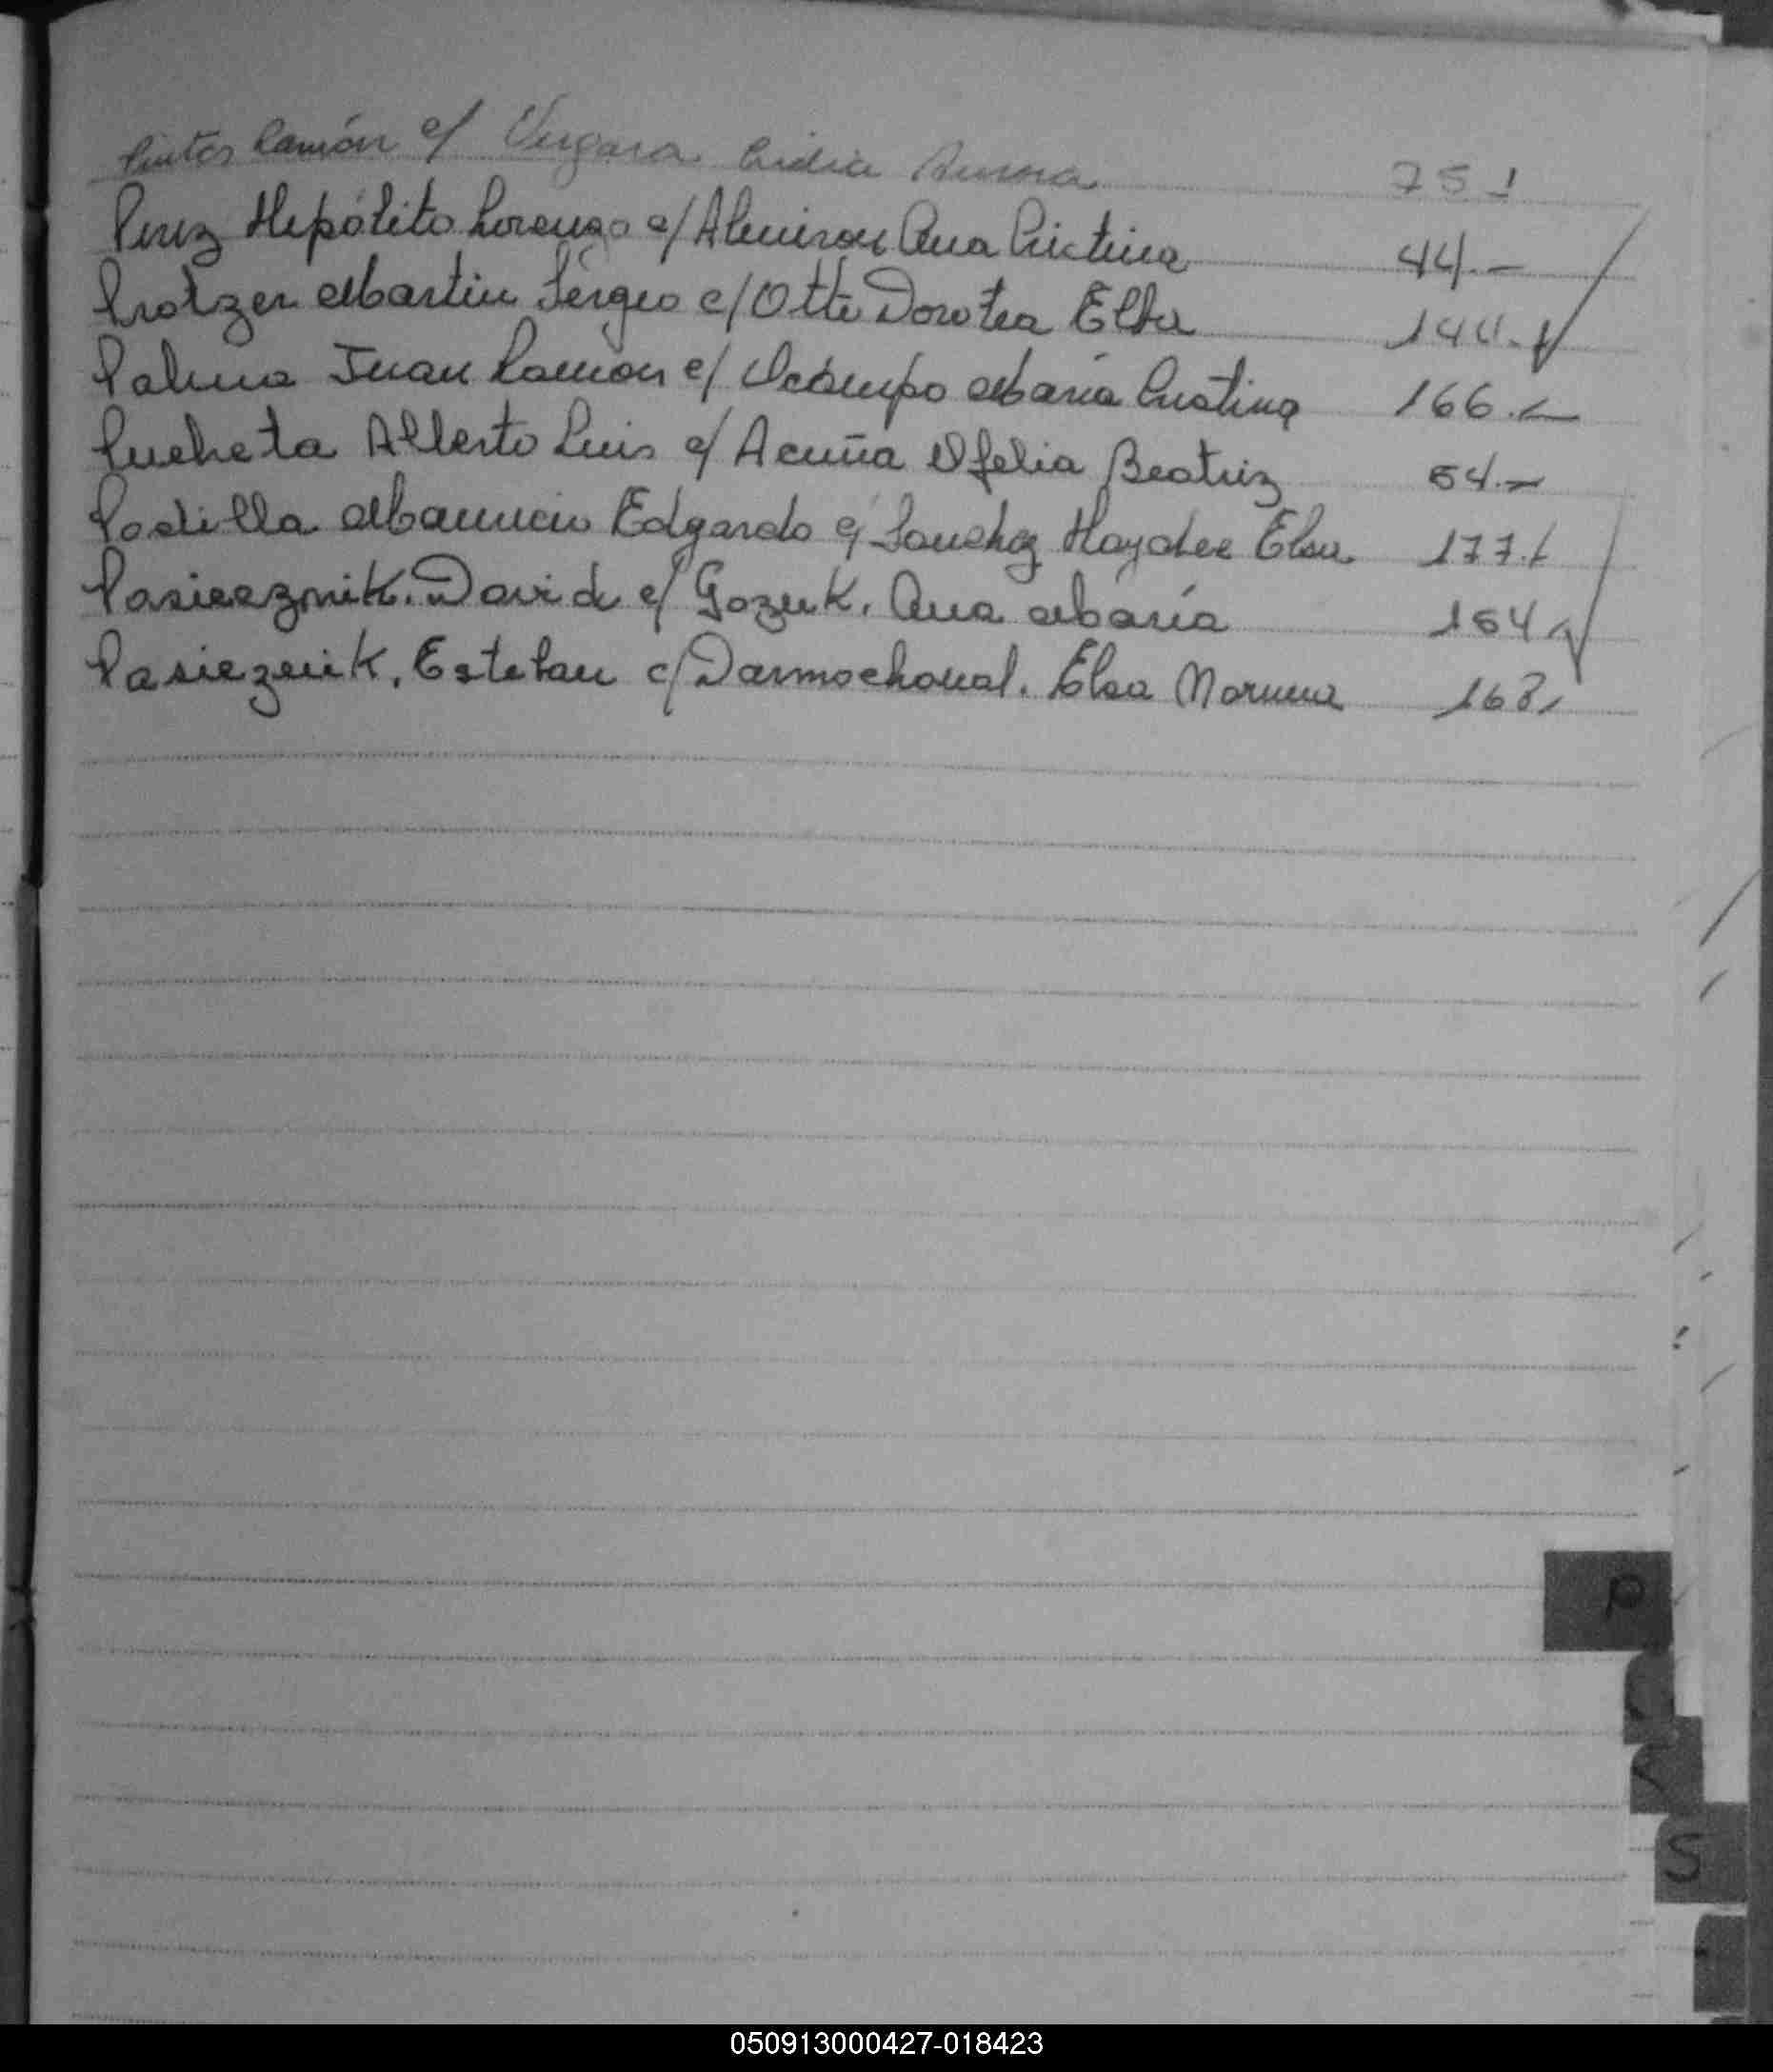 Pintos Ramón c/ Vergara Lidia Aurora 751
Perez Hipólito Lorenzo c/ Almiron Ana Cristina 44.-
Protzer Martin Sergio c/ Otto Dorotea Elba 144.
Palma Juan Ramón c/ Ocampo María Cristina 166.-
Pucheta Alberto Luis c/ Acuña Ofelia Beatriz 54.-
Padilla Mauricio Edgardo c/ Sanchez Haydee Elsa 177.
Pasiecznik. David c/ Gozuk. Ana María 154
Pasieznik. Esteban c/ Darmochowal. Elsa Norma 168
P
S
050913000427-018423